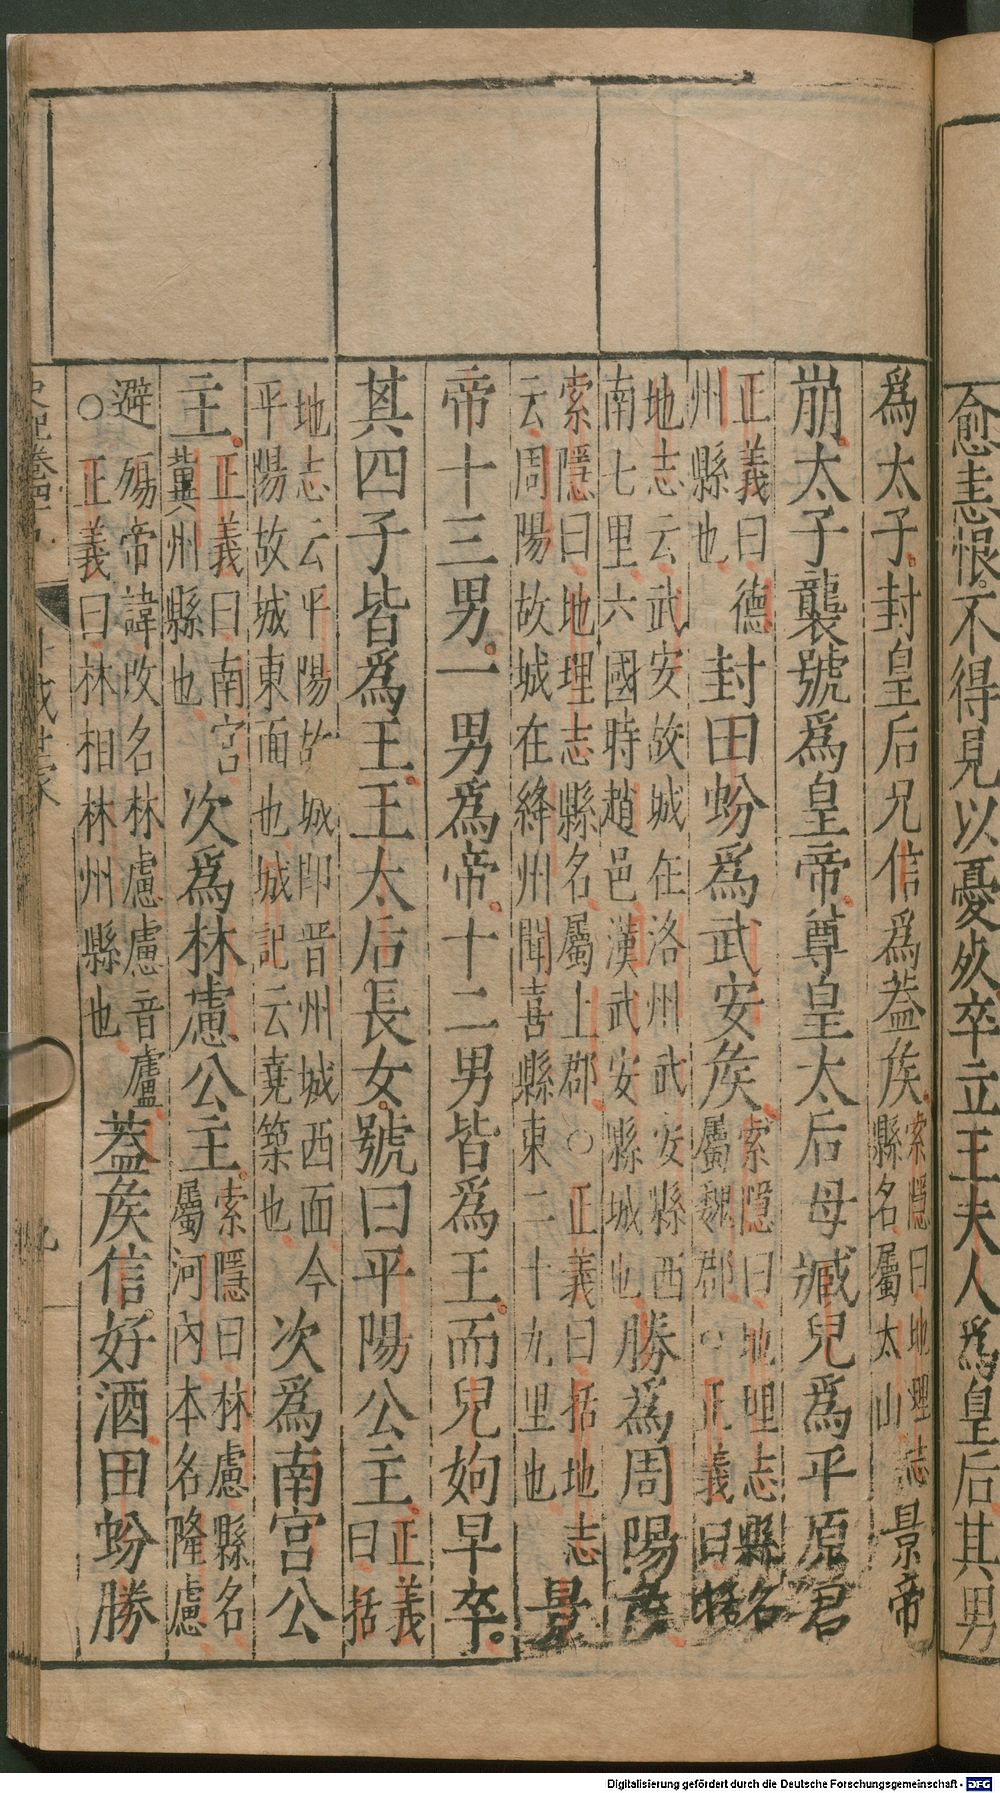 愈恚恨不得見以憂死卒立王夫人爲皇后其男
爲太子封皇后兄信爲蓋矦索隱曰地理志縣名屬太山景帝
崩太子襲號爲皇帝尊皇太后母臧兒爲平原君
正義曰德州縣也封田蚡爲武安矦索隱曰地理志縣名屬魏郡○正義曰括
地志云武安故城在洛州武安縣西南七里六國時趙邑漢武安縣城也勝爲周陽矦
索隱曰地理志縣名屬上郡○正義曰括地志云周陽故城在絳州聞喜縣東二十九里也景
帝十三男一男爲帝十二男皆爲王而兒姁早卒
其四子皆爲王王太后長女號曰平陽公主正義曰括
地志云平陽故城卽晋州城西面今平陽故城東面也城記云堯築也次爲南宮公
主正義曰南宮冀州縣也次爲林慮公主索隱曰林慮縣名屬河內本名隆慮
避殤帝諱改名林慮慮音廬○正義曰林相林州縣也蓋矦信好酒田蚡勝
史記卷四九
外戚世家
九
Digitalisierung gefördert durch die Deutsche Forschungsgemeinschaft - DFG